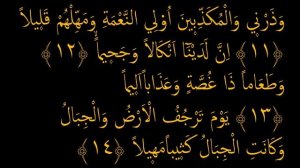 وَذَرْنِي وَالْمُكَذِّبِينَ أُوْلِي النَّعْمَةِ وَمَهِّلْهُمْ قَلِيلاً
﴿١١﴾ إِنَّ لَدَيْنَا أَنكَالاً وَجَحِيماً ﴿١٢﴾
وَطَعَاماً ذَا غُصَّةٍ وَعَذَاباً أَلِيماً
﴿١٣﴾ يَوْمَ تَرْجُفُ الْأَرْضُ وَالْجِبَالُ
وَكَانَتِ الْجِبَالُ كَثِيباً مَهِيلاً ﴿١٤﴾